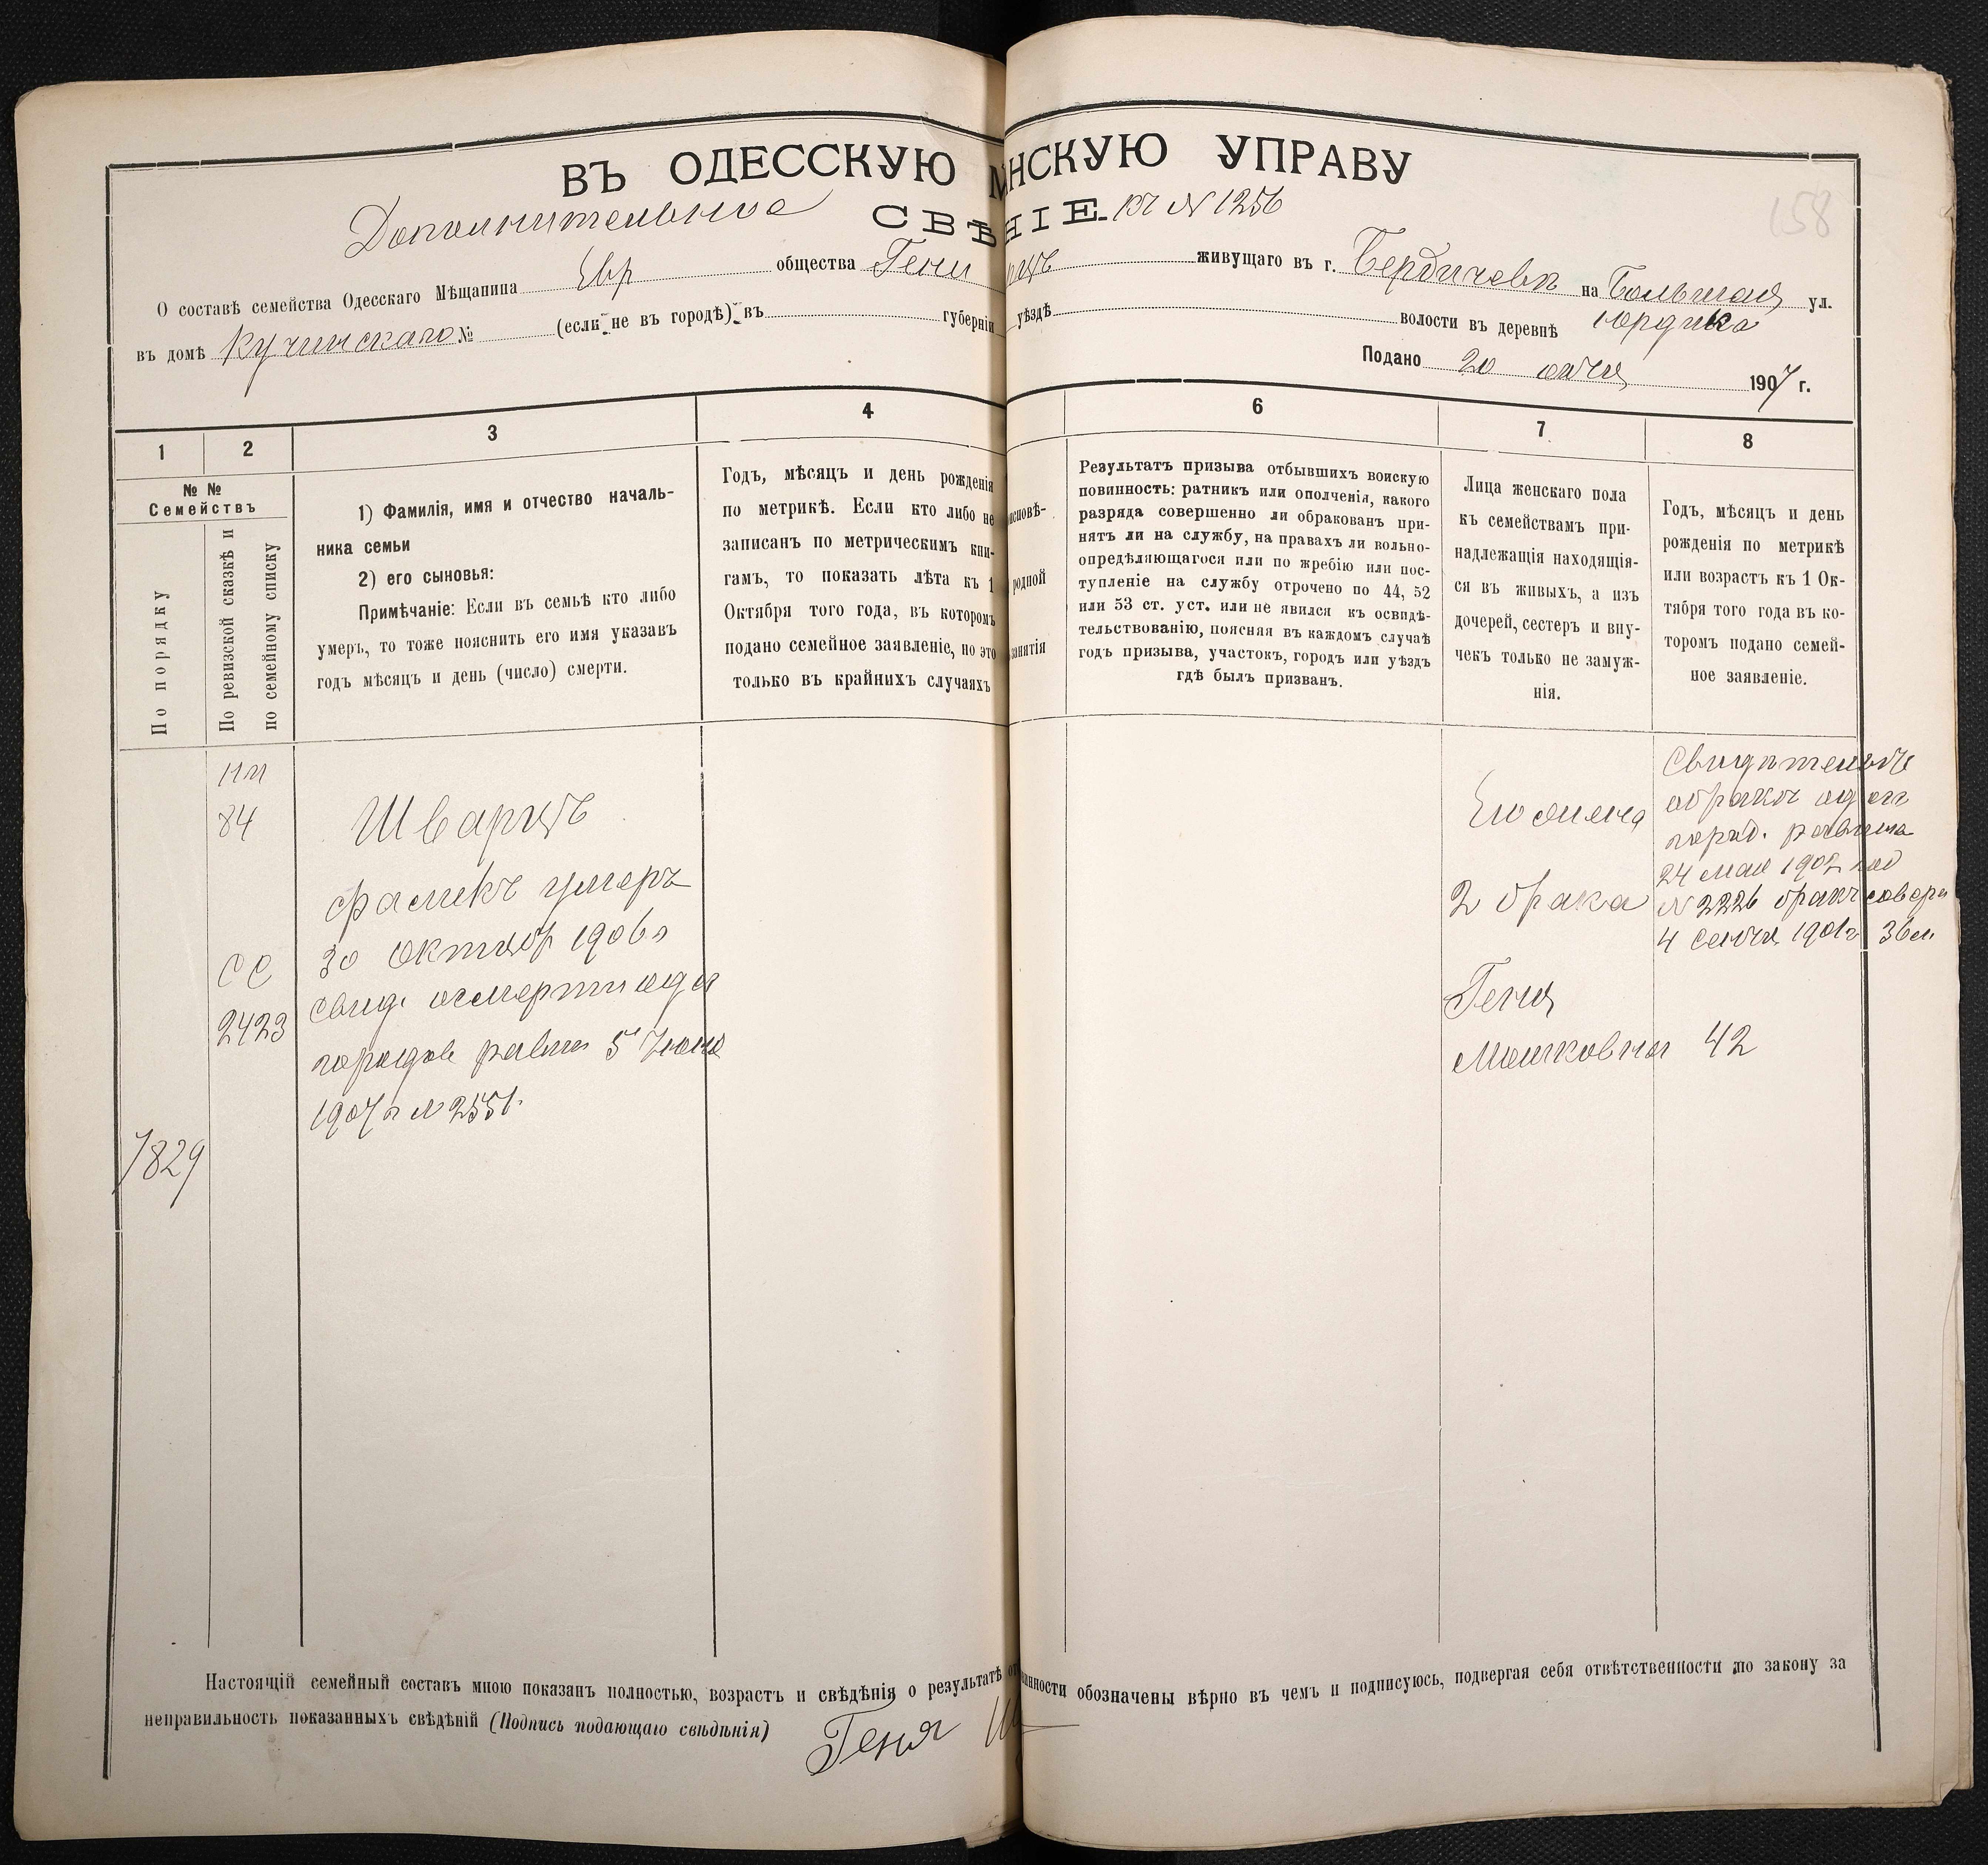 ВЪ ОДЕССКУЮ НСКУЮ УПРАВУ
Дополнительное СВѢ НІЕ къ № 1256
158
О составѣ семейства Одесскаго Мѣщанина Евр общества Гени живущаго въ г. Бердичевѣ на Большая ул.
Юрдика
въ домѣ Кучинскаго № (если не въ городѣ) въ губерніи уѣздѣ волости въ деревнѣ
Подано 20 1907 г.
1 2 3 4 6 7 8
№ №
Семействъ
По порядку
По ревизской сказкѣ и
по семейному списку
1) Фамилія, имя и отчество началь-
ника семьи
2) его сыновья:
Примѣчаніе: Если въ семьѣ кто либо
умеръ, то тоже пояснить его имя указавъ
годъ мѣсяцъ и день (число) смерти.
Годъ, мѣсяцъ и день рожденія
по метрикѣ. Если кто либо не
записанъ по метрическимъ кни-
гамъ, то показать лѣта къ 1
Октября того года, въ которомъ
подано семейное заявленіе, но это
только въ крайнихъ случаяхъ
исповѣ-
родной
занятія
Результатъ призыва отбывшихъ воискую
повинность: ратникъ или ополченія, какого
разряда совершенно ли обракованъ при-
нятъ ли на службу, на правахъ ли вольно-
опредѣляющагося или по жребію или пос-
тупленіе на службу отрочено по 44, 52
или 53 ст. уст. или не явился къ освидѣ-
тельствованію, поясняя въ каждомъ случаѣ
годъ призыва, участокъ, городъ или уѣздъ
гдѣ былъ призванъ.
Лица женскаго пола
къ семействамъ при-
надлежащія находящія-
ся въ живыхъ, а изъ
дочерей, сестеръ и вну-
чекъ только не замуж-
нія.
Годъ, мѣсяцъ и день
рожденія по метрикѣ
или возрастъ къ 1 Ок-
тября того года въ ко-
торомъ подано семей-
ное заявленіе.
84
СС
2423
7829
Шварцъ
Фамикъ умеръ
30 октябр 1906 г
свид. осмерти одес
городов равви 5 Июня
1907 г № 2551.
Его жена
2 брака
Геня
Мошковна 42
Свидѣтельств
обракѣ одесг
город. раввина
24 мая 1902 под
№ 2226 бракъ соверш
4 1901 г
Настоящій семейный составъ мною показанъ полностью, возрастъ и свѣдѣнія о результатѣ от инности обозначены вѣрно въ чемъ и подписуюсь, подвергая себя отвѣтственности по закону за
неправильность показанныхъ свѣдѣній (Подпись подающаго свѣдѣнія) Геня Ш